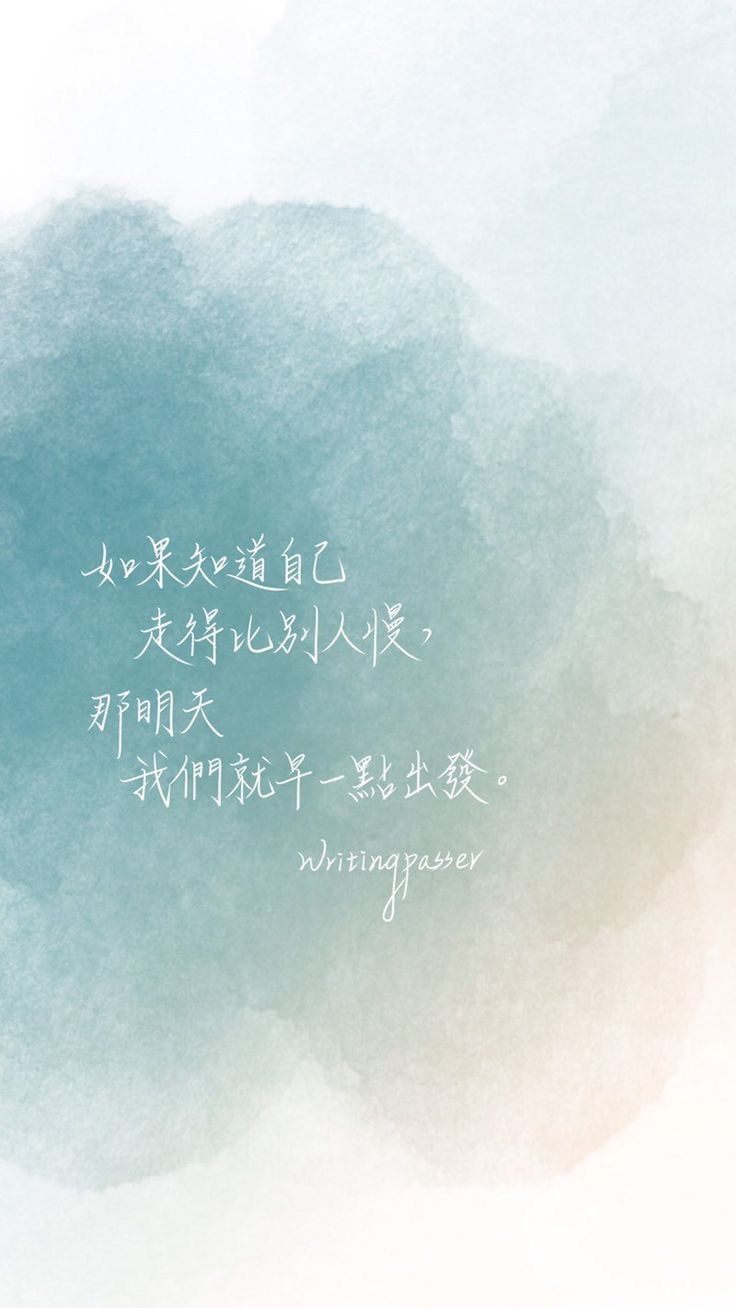 如果知道自己
走得比別人慢，
那明天
我們就早一點出發。
Writingpasser